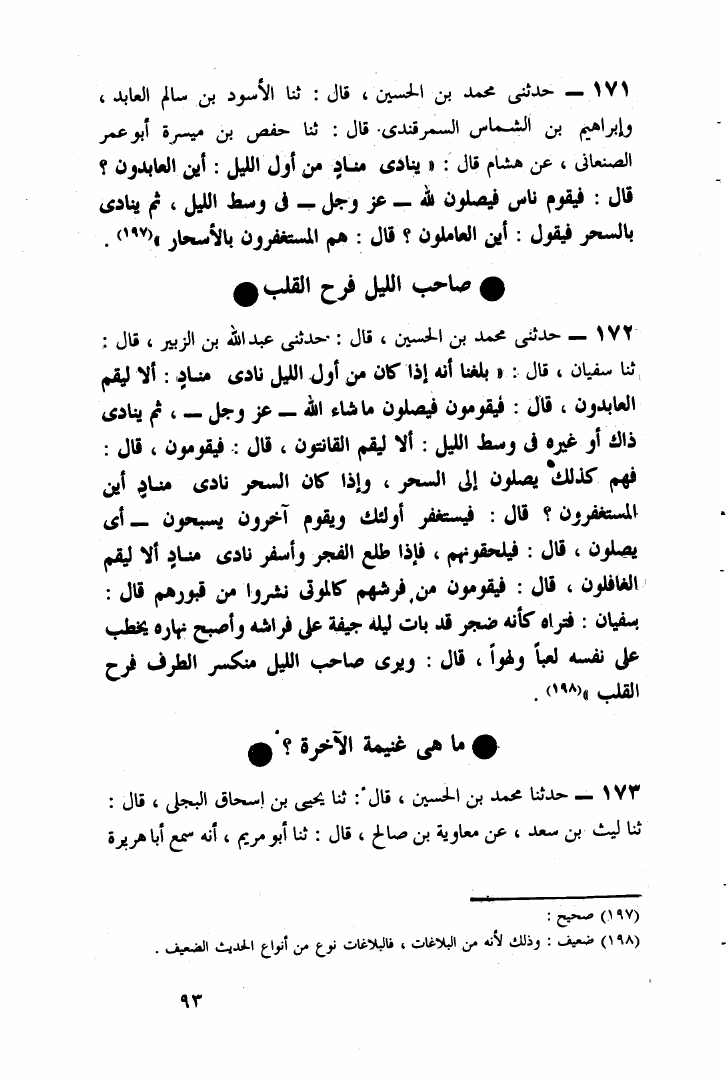 ١٧١ ــ حدثنى محمد بن الحسين ، قال : ثنا الأسود بن سالم العابد ،
وإبراهيم بن الشماس السمرقندى قال : ثنا حفص بن ميسرة أبو عمر
الصنعانى ، عن هشام قال : « ينادى منادٍ من أول الليل : أين العابدون ؟
قال : فيقوم ناس فيصلون لله ــ عز وجل ــ فى وسط الليل ، ثم ينادى
بالسحر فيقول : أين العاملون ؟ قال : هم المستغفرون بالأسحار »(١٩٧) .
● صاحب الليل فرح القلب ●
١٧٢ ــ حدثنى محمد بن الحسين ، قال : حدثنى عبدالله بن الزبير ، قال :
ثنا سفيان ، قال : « بلغنا أنه إذا كان من أول الليل نادى منادٍ : ألا ليقم
العابدون ، قال : فيقومون فيصلون ماشاء الله ــ عز وجل ــ ، ثم ينادى
ذاك أو غيره فى وسط الليل : ألا ليقم القانتون ، قال : فيقومون ، قال :
فهم كذلك يصلون إلى السحر ، وإذا كان السحر نادى منادٍ أين
المستغفرون ؟ قال : فيستغفر أولئك ويقوم آخرون يسبحون ــ أى
يصلون ، قال : فيلحقونهم ، فإذا طلع الفجر وأسفر نادى منادٍ ألا ليقم
الغافلون ، قال : فيقومون من فرشهم كالموتى نشروا من قبورهم قال :
سفيان : فتراه كأنه ضجر قد بات ليله جيفة على فراشه وأصبح نهاره يخطب
على نفسه لعباً ولهواً ، قال : ويرى صاحب الليل منكسر الطرف فرح
القلب »(١٩٨) .
● ما هى غنيمة الآخرة ؟ ●
١٧٣ ــ حدثنا محمد بن الحسين ، قال : ثنا يحيى بن إسحاق البجلى ، قال :
ثنا ليث بن سعد ، عن معاوية بن صالح ، قال : ثنا أبو مريم ، أنه سمع أبا هريرة
(١٩٧) صحيح :
(١٩٨) ضعيف : وذلك لأنه من البلاغات ، فالبلاغات نوع من أنواع الحديث الضعيف .
٩٣